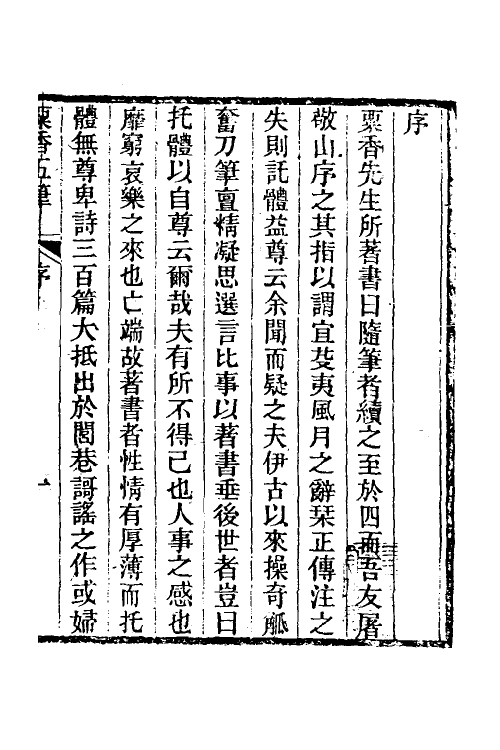 序
粟香先生所著書曰隨筆者續之至於四而吾友屠
敬山序之其指以謂宜芟夷風月之辭栞正傳注之
失則託體益尊云余聞而疑之夫伊古以來操奇觚
奮刀筆亶精凝思選言比事以著書垂後世者豈曰
托體以自尊云爾哉夫有所不得已也人事之感也
靡窮哀樂之來也亡端故著書者性情有厚薄而托
體無尊卑詩三百篇大抵出於閭巷謌謠之作或婦
粟香五筆 序 一